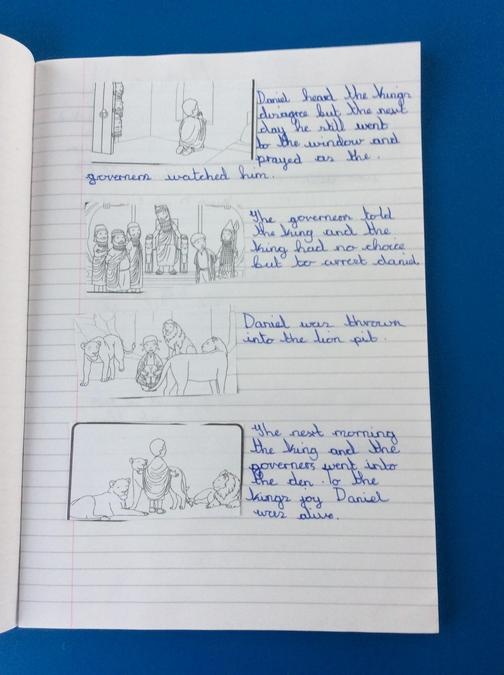 Daniel heard the kings
disagree but the next
day he still went
to the window and
prayed as the.
governers watched him.
The governers told
the king and the
king had no choice
but to arrest daniel
Daniel was thrown
into the lion pit.
The next morning
the king and the
governers went into
the den. To the
kings joy Daniel
was alive.